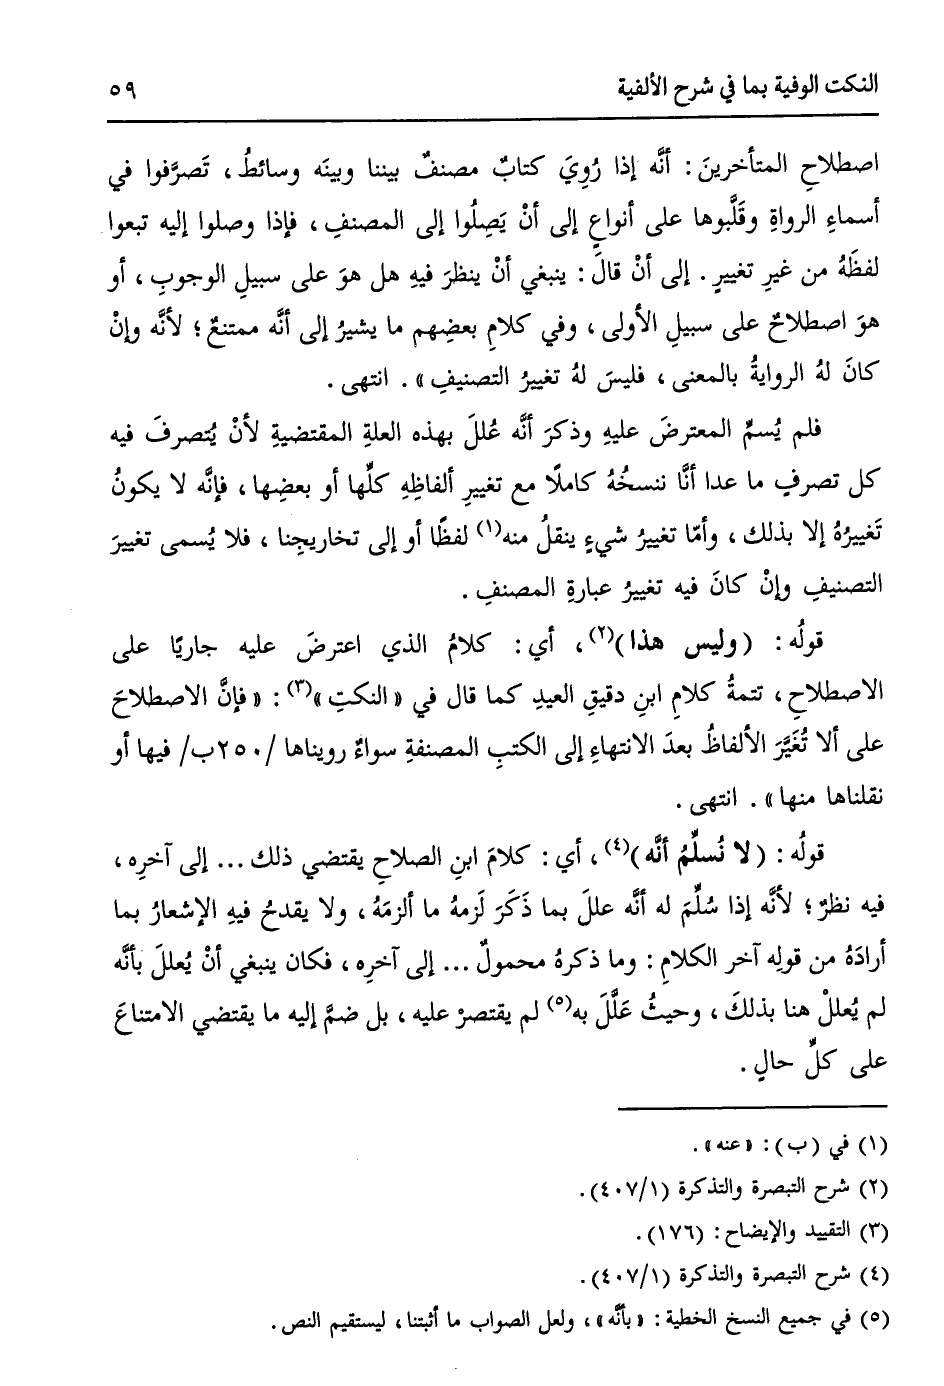 النكت الوفية بما في شرح الألفية ٥٩
اصطلاحِ المتأخرينَ: أنَّه إذا رُوِيَ كتابٌ مصنفٌ بيننا وبينَه وسائطُ، تَصرَّفوا في
أسماءِ الرواةِ وقَلَّبوها على أنواعٍ إلى أنْ يَصِلُوا إلى المصنفِ، فإذا وصلوا إليه تبعوا
لفظَهُ من غيرِ تغييرٍ. إلى أنْ قالَ: ينبغي أنْ ينظرَ فيهِ هل هوَ على سبيلِ الوجوبِ، أو
هوَ اصطلاحٌ على سبيلِ الأولى، وفي كلامِ بعضِهم ما يشيرُ إلى أنَّه ممتنعٌ؛ لأنَّه وإنْ
كانَ لهُ الروايةُ بالمعنى، فليسَ لهُ تغييرُ التصنيفِ». انتهى.
فلم يُسمِّ المعترضَ عليهِ وذكرَ أنَّه عُللَ بهذه العلةِ المقتضيةِ لأنْ يُتصرفَ فيه
كل تصرفٍ ما عدا أنَّا ننسخُهُ كاملًا مع تغييرِ ألفاظِهِ كلِّها أو بعضِها، فإنَّه لا يكونُ
تَغييرُهُ إلا بذلك، وأمّا تغييرُ شيءٍ ينقلُ منه(١) لفظًا أو إلى تخاريجِنا، فلا يُسمى تغييرَ
التصنيفِ وإنْ كانَ فيه تغييرُ عبارةِ المصنفِ.
قولُه: (وليس هذا)(٢)، أي: كلامُ الذي اعترضَ عليه جاريًا على
الاصطلاحِ، تتمةُ كلامِ ابنِ دقيقِ العيدِ كما قال في «النكتِ»(٣): «فإنَّ الاصطلاحَ
على ألا تُغَيَّرَ الألفاظُ بعدَ الانتهاءِ إلى الكتبِ المصنفةِ سواءٌ رويناها /٢٥٠ب/ فيها أو
نقلناها منها». انتهى.
قولُه: (لا نُسلِّمُ أنَّه)(٤)، أي: كلامَ ابنِ الصلاحِ يقتضي ذلك... إلى آخرِه،
فيه نظرٌ؛ لأنَّه إذا سُلِّمَ له أنَّه عللَ بما ذَكَرَ لَزمهُ ما ألزمَهُ، ولا يقدحُ فيهِ الإشعارُ بما
أرادَهُ من قولِه آخر الكلامِ: وما ذكرهُ محمولٌ... إلى آخرِه، فكان ينبغي أنْ يُعللَ بأنَّه
لم يُعللْ هنا بذلكَ، وحيثُ عَلَّلَ به(٥) لم يقتصرْ عليه، بل ضمَّ إليه ما يقتضي الامتناعَ
على كلِّ حالٍ.
(١) في (ب): «عنه».
(٢) شرح التبصرة والتذكرة (٤٠٧/١).
(٣) التقييد والإيضاح: (١٧٦).
(٤) شرح التبصرة والتذكرة (٤٠٧/١).
(٥) في جميع النسخ الخطية: «بأنَّه»، ولعل الصواب ما أثبتنا، ليستقيم النص.